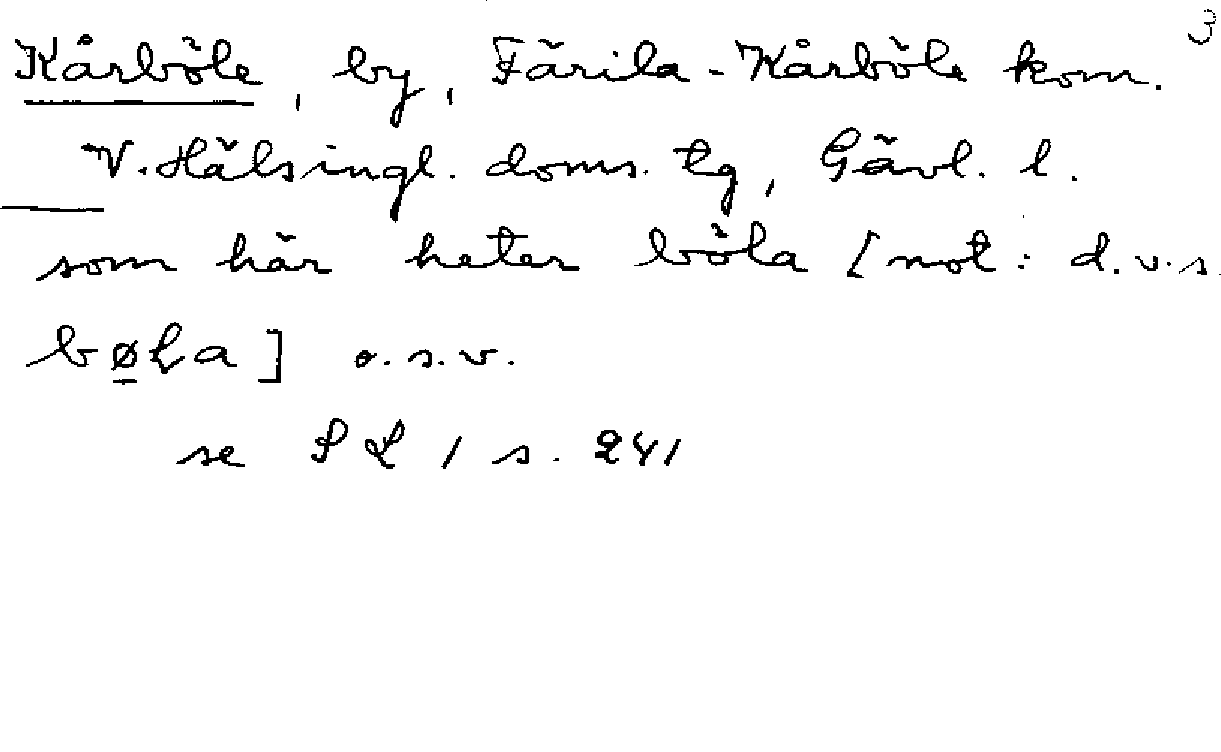 3
Kårböle, by, Färila-Kårböle kom.
V. Hälsingl. doms. tg, Gävl. l.
som här heter böla [not: d.v.s.
bøLa] o.s.v.
se SL 1 s. 241